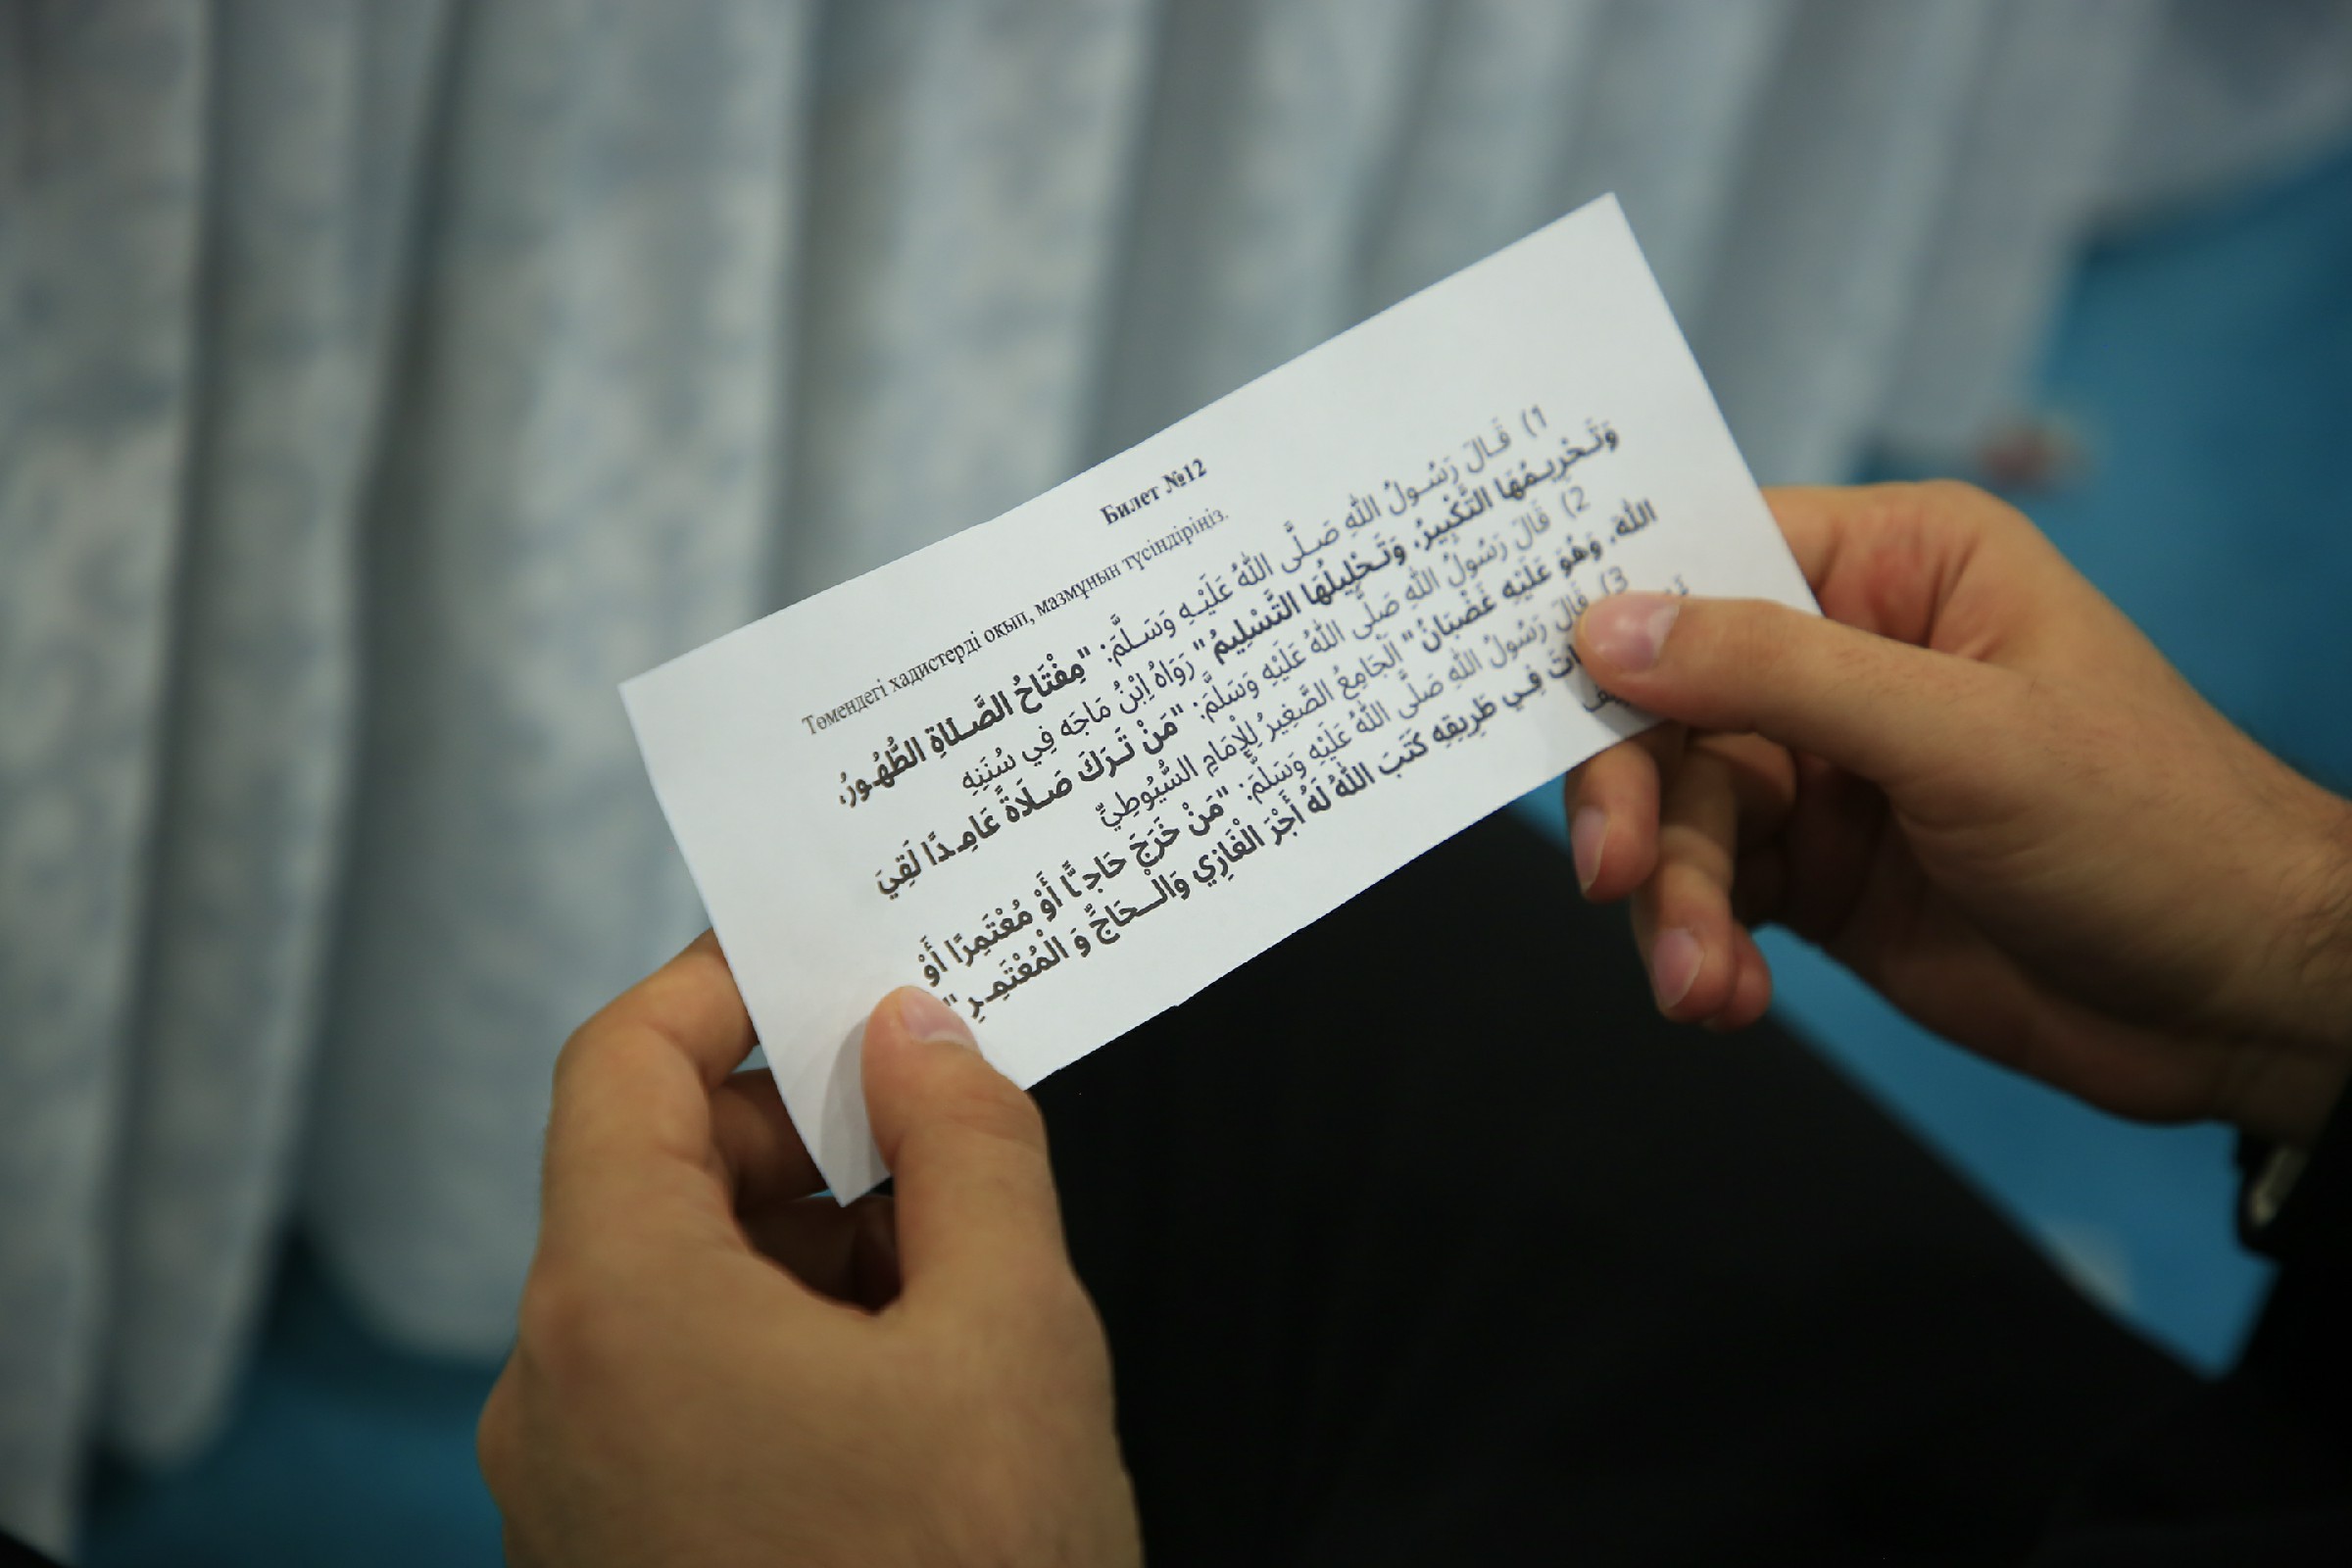 Билет №12
Төмендегі хадистерді оқып, мазмұнын түсіндіріңіз.
1) قَالَ رَسُولُ اللهِ صَلَّى اللهُ عَلَيْهِ وَسَلَّمَ: "مِفْتَاحُ الصَّلَاةِ الطُّهُورُ،
وَتَحْرِيمُهَا التَّكْبِيرُ، وَتَحْلِيلُهَا التَّسْلِيمُ" رَوَاهُ اِبْنُ مَاجَه فِي سُنَنِهِ
2) قَالَ رَسُولُ اللهِ صَلَّى اللهُ عَلَيْهِ وَسَلَّمَ: "مَنْ تَرَكَ صَلَاةً عَامِدًا لَقِيَ
اللهَ، وَهُوَ عَلَيْهِ غَضْبَانُ" اَلْجَامِعُ الصَّغِيرُ لِلْإِمَامِ السُّيُوطِيِّ
3) قَالَ رَسُولُ اللهِ صَلَّى اللهُ عَلَيْهِ وَسَلَّمَ: "مَنْ خَرَجَ حَاجًّا أَوْ مُعْتَمِرًا أَوْ
فِي طَرِيقِهِ كَتَبَ اللهُ لَهُ أَجْرَ الْغَازِي وَالْحَاجِّ وَ الْمُعْتَمِرِ"